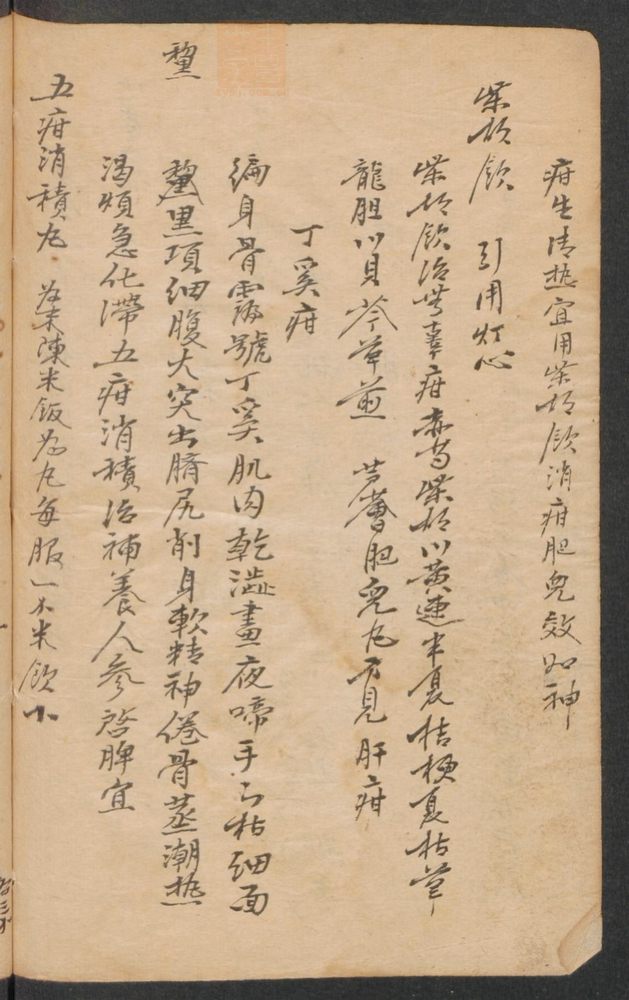 疳生清热宜用柴胡飲消疳胆兒效如神
柴胡飲 引用灯心
柴胡飲治無辜疳赤芍柴胡川黃連半夏桔梗夏枯草
龍胆川貝芩草煎 芦薈肥兒丸方見肝疳
丁奚疳
徧身骨露號丁奚肌肉乾澁晝夜啼手足枯細面
黧
黧黑項細腹大突出臍尻削身軟精神倦骨蒸潮热
渴煩急化滯五疳消積治補養人參啓脾宜
五疳消積丸 為末陳米飯為丸每服一米飲下